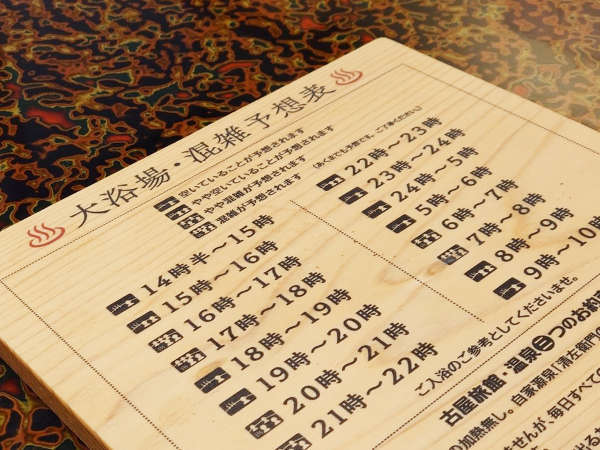 大浴場・混雑予想表
空いていることが予想されます
やや空いていることが予想されます
やや混雑が予想されます
混雑が予想されます
(あくまでも予想です。ご了承ください。)
14時半～15時
15時～16時
16時～17時
17時～18時
18時～19時
19時～20時
20時～21時
21時～22時
22時～23時
23時～24時
24時～5時
5時～6時
6時～7時
7時～8時
8時～9時
9時～10時
ご入浴のご参考としてくださいませ。
古屋旅館・温泉三つのお約
の加熱無し。自家源泉「清左衛門の
ませんが、毎日すべての